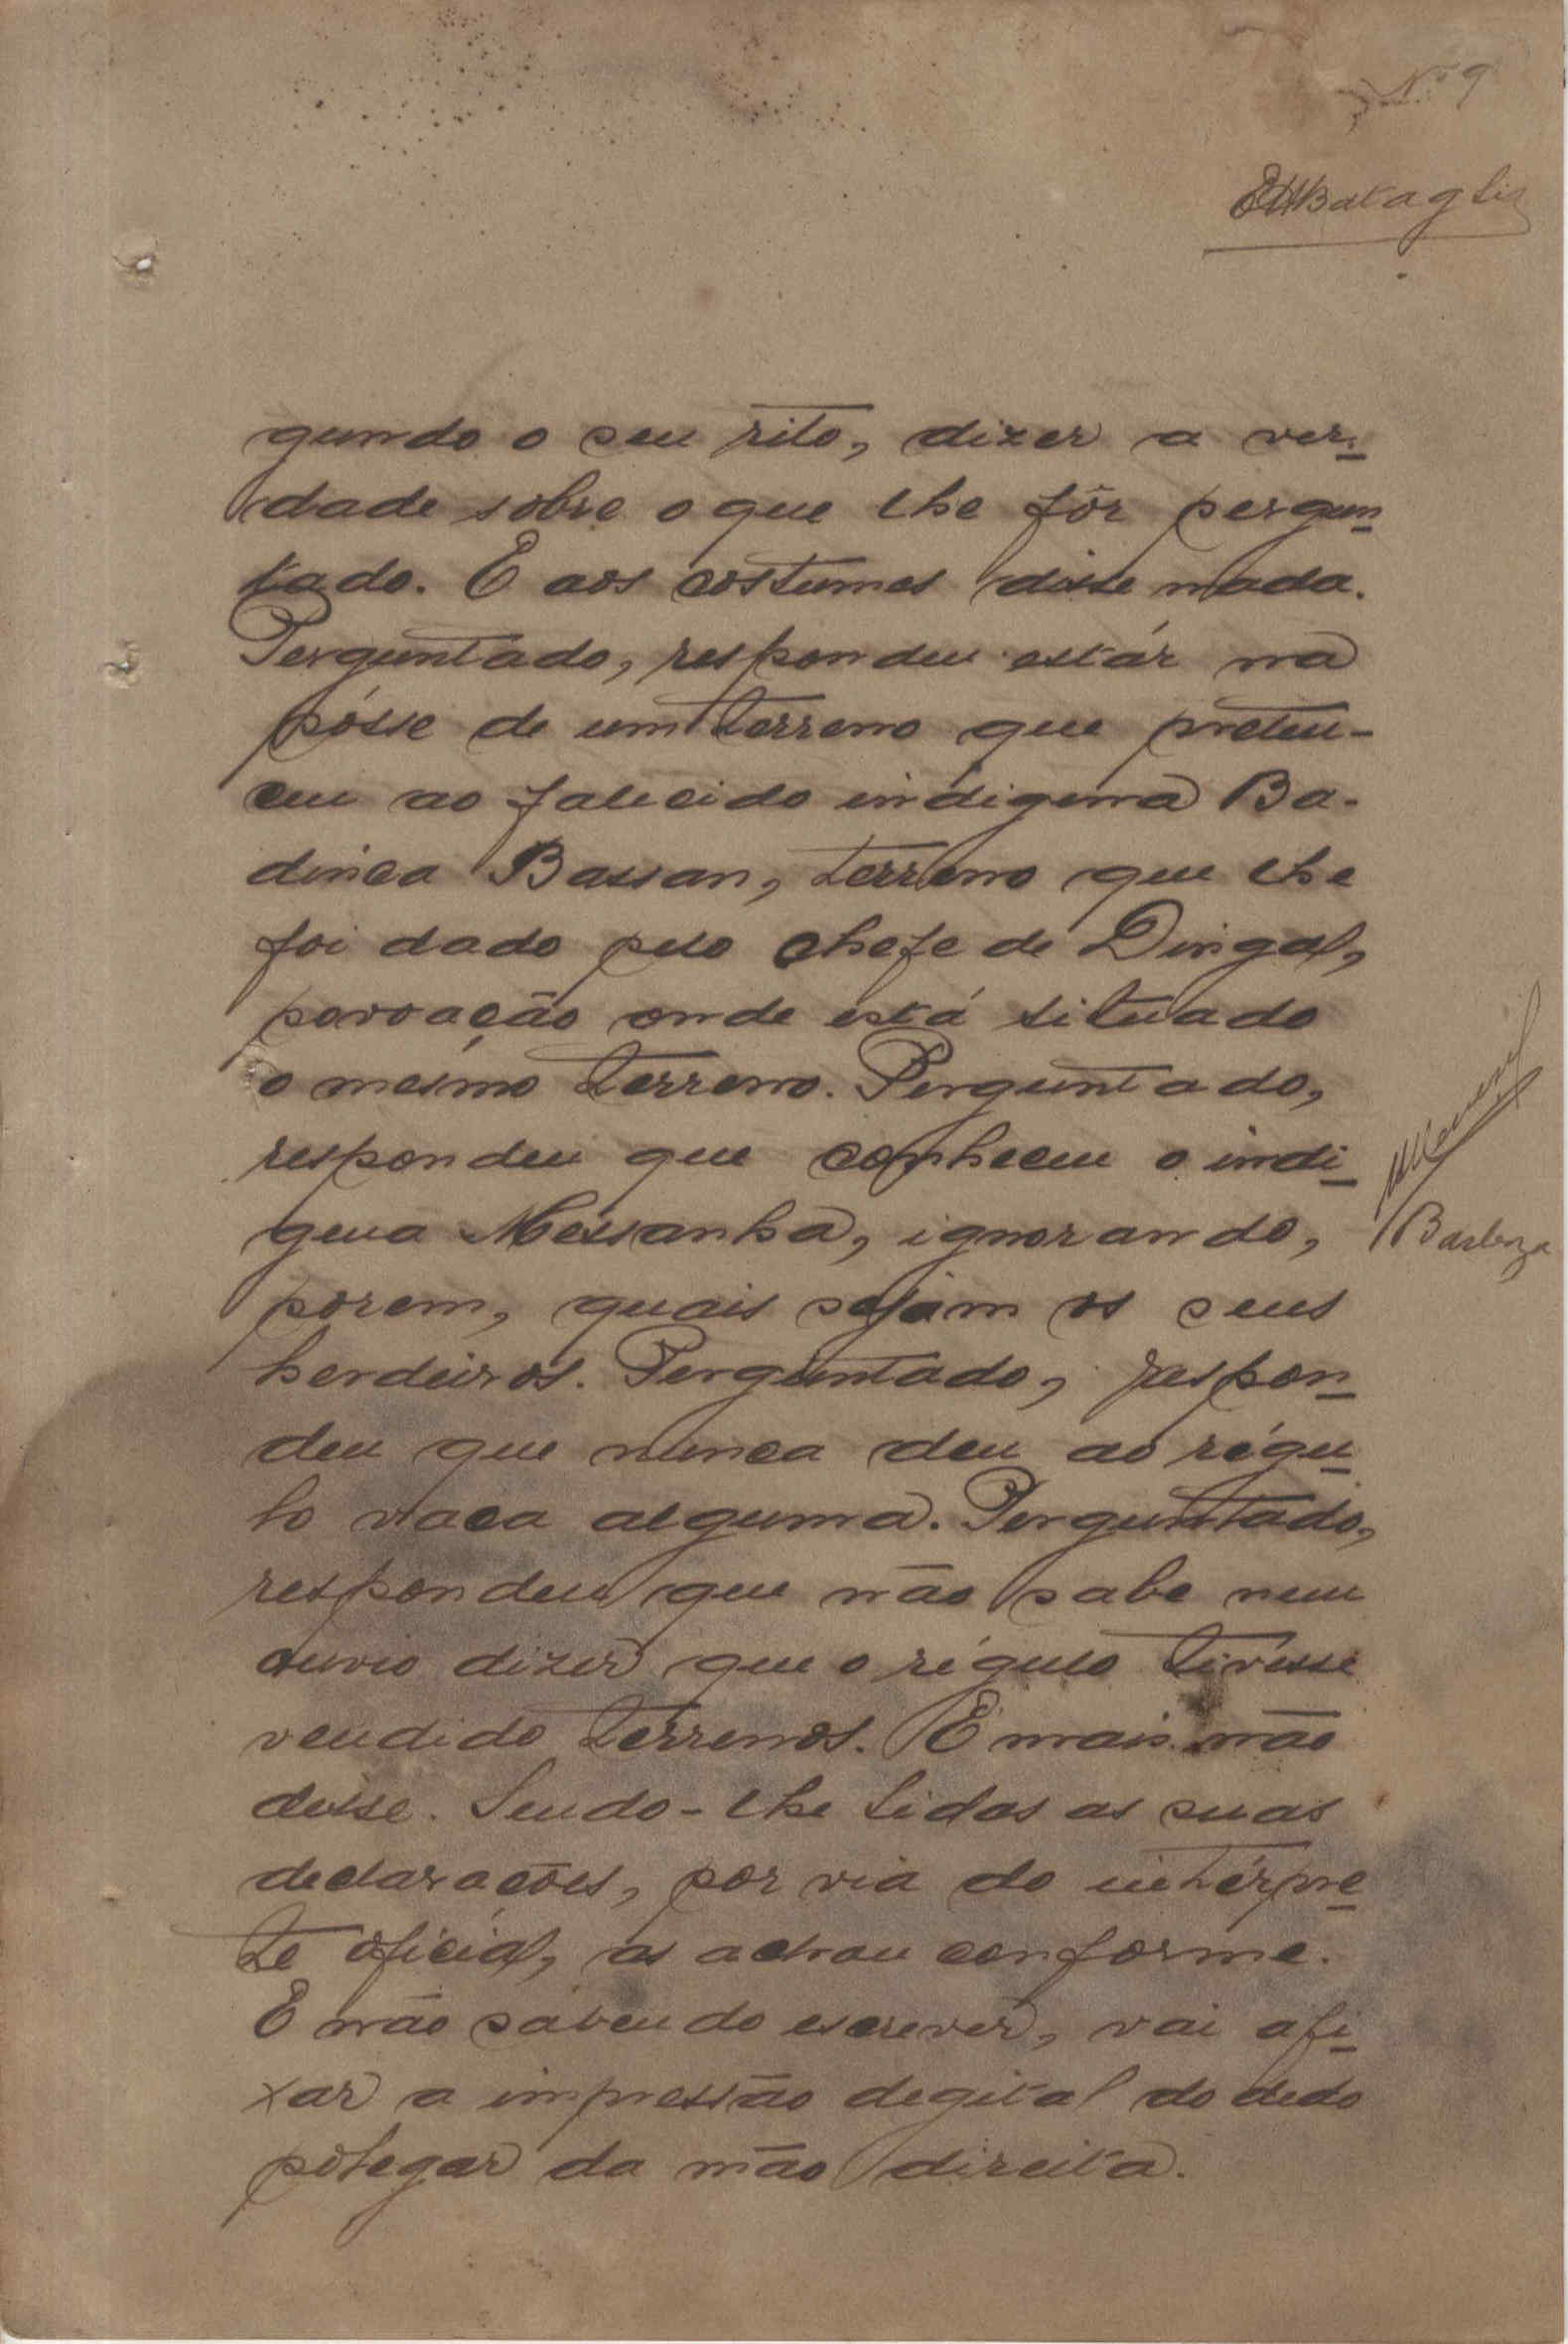 Nº 9
EHBataglia
gundo o seu rito, dizer a ver-
dade sobre o que lhe fôr pergun-
tado. E aos costumes disse nada.
Perguntado, respondeu estár na
pósse de um terreno que preten-
ceu ao falecido indigena Ba-
dinca Bassan, terreno que lhe
foi dado pelo chefe de Dingal,
povoação onde está situado
o mesmo terreno. Perguntado,
respondeu que conheceu o indi-
gena Messanha, ignorando,
porem, quais sejam os seus
herdeiros. Perguntado, respon-
deu que nunca deu ao régu-
lo vaca alguma. Perguntado,
respondeu que não sabe nem
ouvio dizer que o régulo tivesse
vendido terrenos. E mais não
disse. Sendo-lhe lidas as suas
declarações, por via do intérpre-
te oficial, as achou conforme.
E não sabendo escrever, vai afi-
xar a impressão degital do dedo
polegar da mão direita.
Barbosa